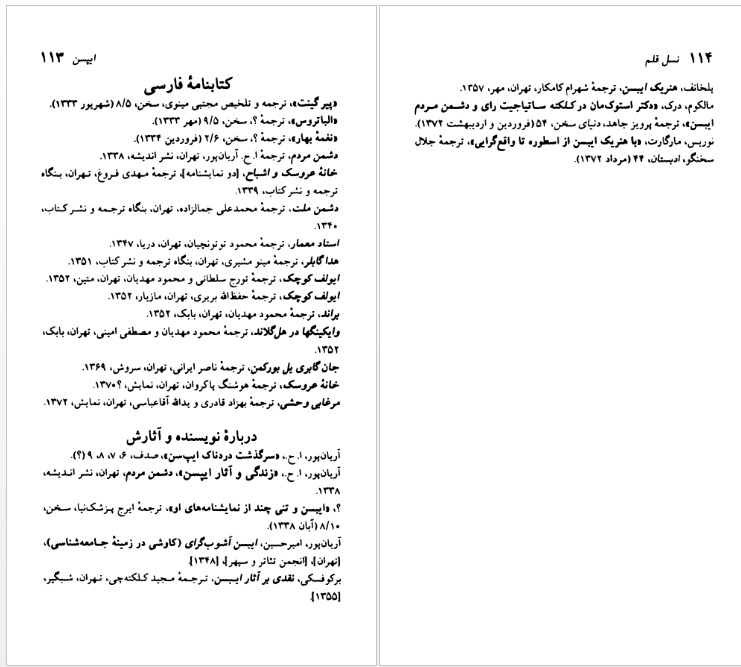 ایبسن ۱۱۳
کتابنامهٔ فارسی
«پیر گینت»، ترجمه و تلخیص مجتبی مینوی، سخن، ۸/۵ (شهریور ۱۳۳۳).
«الباتروس»، ترجمهٔ ؟، سخن، ۹/۵ (مهر ۱۳۳۳).
«نغمهٔ بهار»، ترجمهٔ ؟، سخن، ۲/۶ (فروردین ۱۳۳۴).
دشمن مردم، ترجمهٔ ا. ح. آریان‌پور، تهران، نشر اندیشه، ۱۳۳۸.
خانهٔ عروسک و اشباح، [دو نمایشنامه]، ترجمهٔ مهدی فروغ، تهران، بنگاه
ترجمه و نشر کتاب، ۱۳۳۹.
دشمن ملت، ترجمهٔ محمدعلی جمالزاده، تهران، بنگاه ترجمه و نشر کتاب،
۱۳۴۰.
استاد معمار، ترجمهٔ محمود توتونچیان، تهران، دریا، ۱۳۴۷.
هدا گابلر، ترجمهٔ مینو مشیری، تهران، بنگاه ترجمه و نشر کتاب، ۱۳۵۱.
ایولف کوچک، ترجمهٔ تورج سلطانی و محمود مهدیان، تهران، متین، ۱۳۵۲.
ایولف کوچک، ترجمهٔ حفظ‌الله بریری، تهران، مازیار، ۱۳۵۲.
براند، ترجمهٔ محمود مهدیان، تهران، بابک، ۱۳۵۲.
وایکینگها در هل‌گلاند، ترجمهٔ محمود مهدیان و مصطفی امینی، تهران، بابک،
۱۳۵۲.
جان گابری یل بورکمن، ترجمهٔ ناصر ایرانی، تهران، سروش، ۱۳۶۹.
خانهٔ عروسک، ترجمهٔ هوشنگ پاکروان، تهران، نمایش، ؟۱۳۷۰.
مرغابی وحشی، ترجمهٔ بهزاد قادری و یدالله آقاعباسی، تهران، نمایش، ۱۳۷۲.
دربارهٔ نویسنده و آثارش
آریان‌پور، ا. ح.، «سرگذشت دردناک ایپ‌سن»، صدف، ۶، ۷، ۸، ۹ (؟).
آریان‌پور، ا. ح.، «زندگی و آثار ایبسن»، دشمن مردم، تهران، نشر اندیشه،
۱۳۳۸.
؟، «ایبسن و تنی چند از نمایشنامه‌های او»، ترجمهٔ ایرج پزشک‌نیا، سخن،
۸/۱۰ (آبان ۱۳۳۸).
آریان‌پور، امیرحسین، ایبسن آشوب‌گرای (کاوشی در زمینهٔ جامعه‌شناسی)،
[تهران]، [انجمن تئاتر و سپهر]، [۱۳۴۸].
برکوفسکی، نقدی بر آثار ایبسن، ترجمهٔ مجید کلکته‌چی، تهران، شبگیر،
[۱۳۵۵].
۱۱۴ نسل قلم
پلخانف، هنریک ایبسن، ترجمهٔ شهرام کامکار، تهران، مهر، ۱۳۵۷.
مالکوم، درک، «دکتر استوک‌مان در کلکته ساتیاجیت رای و دشمن مردم
ایبسن»، ترجمهٔ پرویز جاهد، دنیای سخن، ۵۴ (فروردین و اردیبهشت ۱۳۷۲).
نوریس، مارگارت، «با هنریک ایبسن از اسطوره تا واقع‌گرایی»، ترجمهٔ جلال
سخنگو، ادبستان، ۴۴ (مرداد ۱۳۷۲).